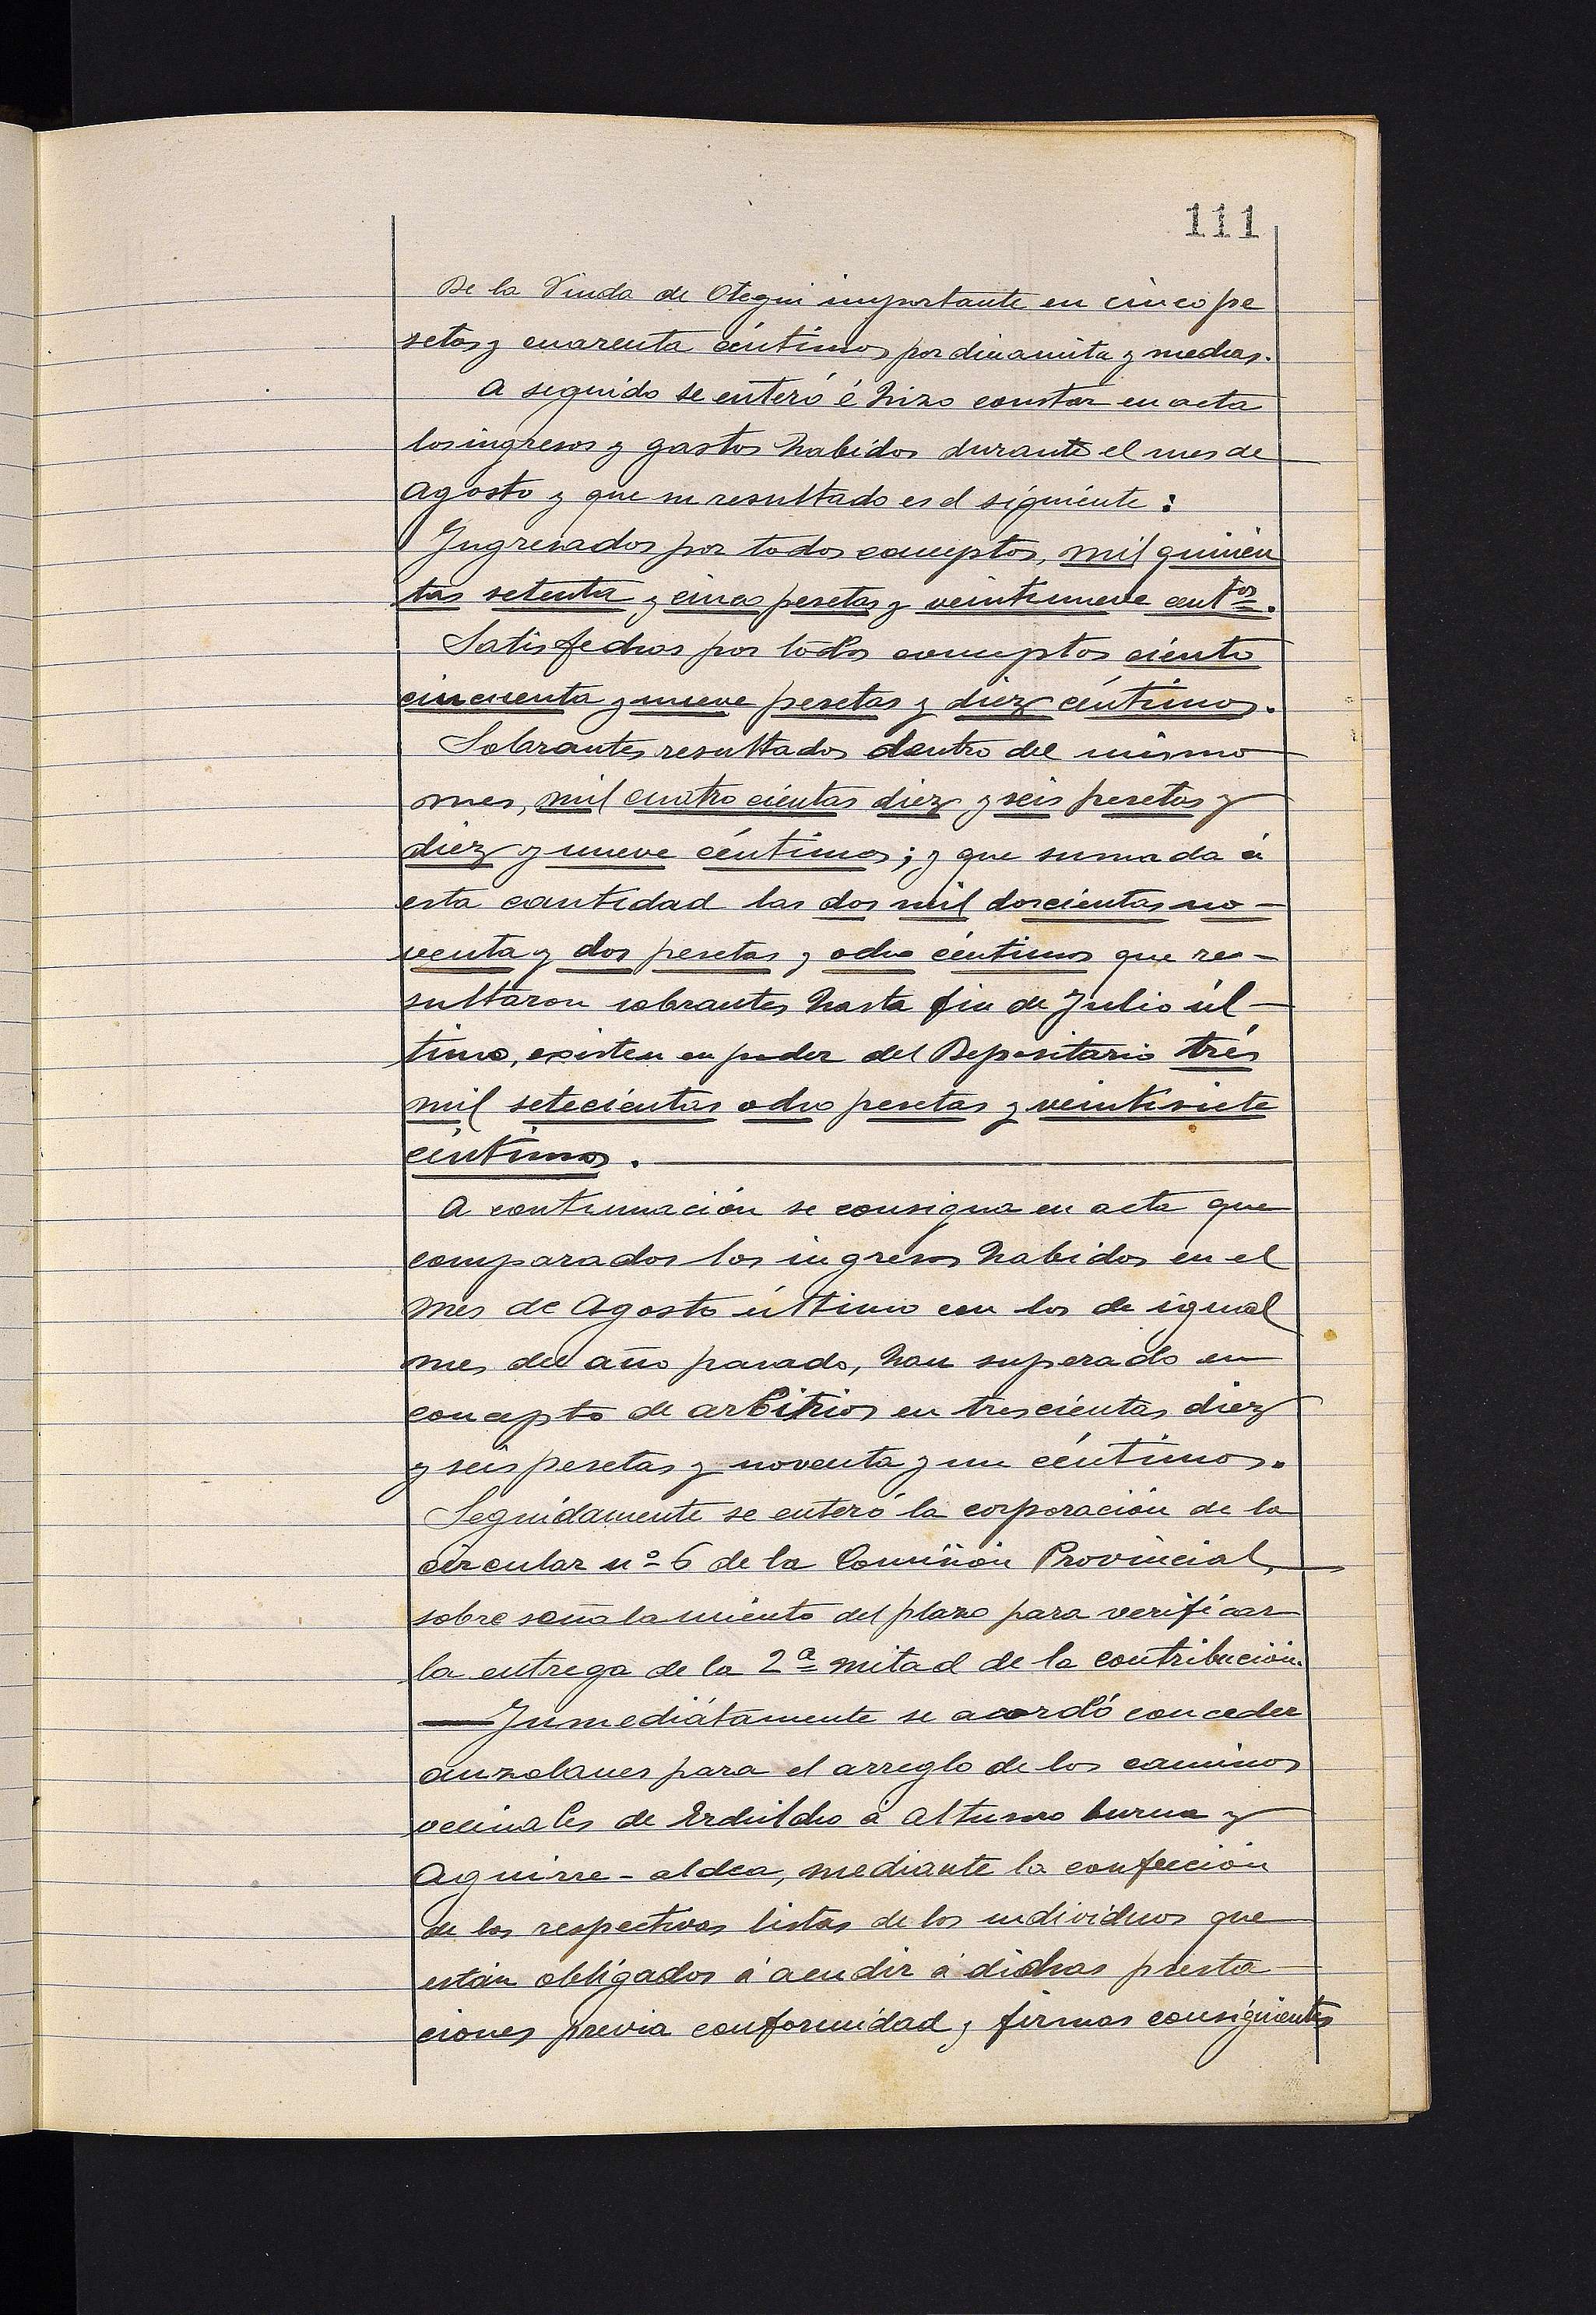 111
De la Viuda de Otegui importante en cinco pe
setas y cuarenta céntimos por dinamita y mechas.
A seguido se enteró é hizo constar en acta
los ingresos y gastos habidos durante el mes de
Agosto y que su resultado es el siguiente:
Ingresados por todos conceptos, mil quinien
tas setenta y cinco pesetas y veintinueve centos.
Satisfechas por todos conceptos ciento
cincuenta y nueve pesetas y diez céntimos.
Sobrantes resultados dentro del mismo
mes, mil cuatrocientas diez y seis pesetas y
diez y nueve céntimos; y que sumada á
esta cantidad las dos mil doscientas no-
venta y dos pesetas y ocho céntimos que re-
sultaron sobrantes hasta fin de Julio úl-
timo, existen en poder del Depositario trés
mil setecientas ocho pesetas y veintisiete
céntimos.
A continuación se consigna en acta que
comparados los ingresos habidos en el
mes de Agosto último con los de igual
mes del año pasado, han superado en
concepto de arbitrios en trescientas diez
y seis pesetas y noventa y un céntimos.
Seguidamente se enteró la corporación de la
circular nº 6 de la Comisión Provincial,
sobre señalamiento del plazo para verificar
la entrega de la 2ª mitad de la contribución.
Inmediátamente se acordó conceder
auzolanes para el arreglo de los caminos
vecinales de Erchilcho á Altunso burua y
Aguirre-aldea, mediante la confección
de las respectivas listas de los individuos que
están obligados á acudir á dichas presta
ciones previa conformidad y firmas consiguientes